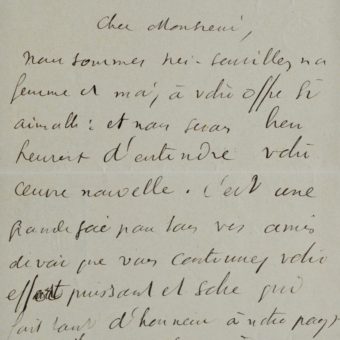 Cher Monsieur,
nous sommes très sensibles, ma
femme et moi, à votre offre si
aimable : et nous serons bien
heureux d'entendre votre
œuvre nouvelle. C'est une
grande joie pour tous vos amis
de voir que vous continuez votre
effort puissant et sobre qui
fait tant d'honneur à notre pays